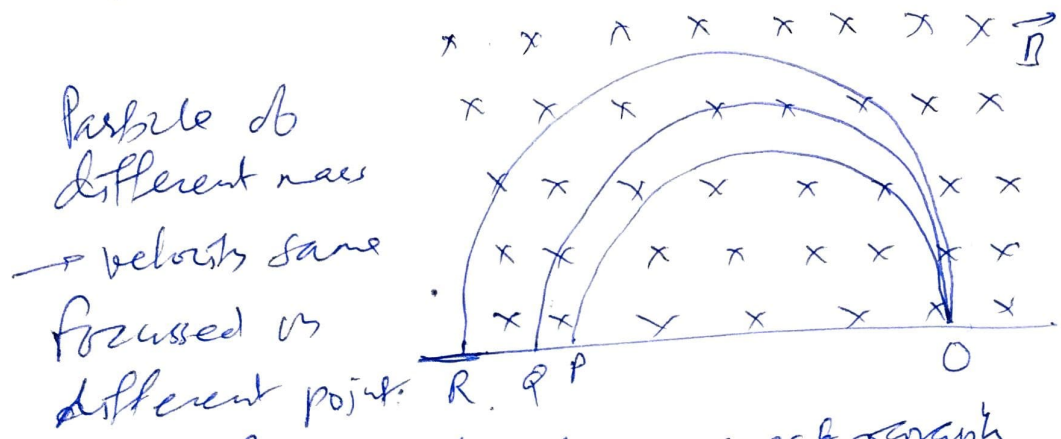 B
Particle of
different mass
→ velocity same
focussed in
different point.
R. Q P O